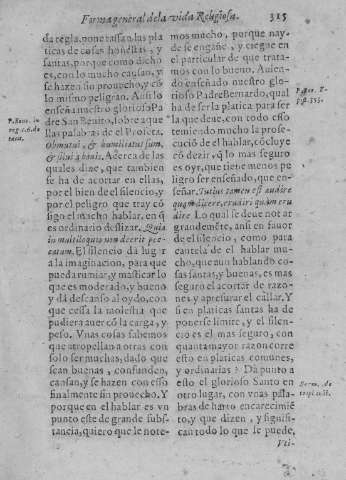 Forma general de la vida Religiosa. 315
da regla, pone tassa en las pla
ticas de cosas honestas, y
santas, porque como dicho
es, con lo mucho cansan, y
se hazen sin prouecho, y có
lo mismo peligran. Assi lo
enseña nuestro glorioso Pa
dre San Benito, sobre aque
llas palabras de el Profeta.
Obmutui, & humiliatus sum,
& silui à bonis. Acerca de las
quales dize, que tambien
se ha de acortar en ellas,
por el bien de el silencio, y
por el peligro que tray có
sigo el mucho hablar, en q̃
es ordinario deslizar. Quia
in multiloquio non deerit pec-
catum. El silencio dà lugar
a la imaginacion, para que
pueda rumiar, y masticar lo
que es moderado, y bueno
y dà descanso al oydo, con
que cessa la molestia que
pudiera auer có la carga, y
peso. Vnas cosas sabemos
que atropellan a otras con
solo ser muchas, dado que
sean buenas, confunden,
cansan, y se hazen con esso
finalmente sin prouecho. Y
porque en el hablar es vn
punto este de grande subs-
tancia, quiero que le note-
mos mucho, porque nay-
de se engañe, y ciegue en
el particular de que trata-
mos con lo bueno. Auien-
do enseñado nuestro glo-
rioso Padre Bernardo, qual
ha de ser la platica para ser
la que deue, con todo esso
temiendo mucho la prose-
cució de el hablar, cócluye
có dezir, q̃ lo mas seguro
es oyr, que tiene menos pe
ligro ser enseñado, que en-
señar. Tutius tamen est audire
quam dicere, erudiri quàm eru
dire. Lo qual se deue notar
grandeméte, ansi en fauor
de el silencio, como para
cautela de el hablar mu-
cho, que aun hablando co-
sas santas, y buenas, es mas
seguro el acortar de razo-
nes, y apresurar el callar. Y
si en platicas santas ha de
ponerse limite, y el silen-
cio es el mas seguro, con
quanta mayor razon corre
esto en platicas comunes,
y ordinarias? Dà punto a
esto el glorioso Santo en
otro lugar, con vnas pala-
bras de harto encarecimié
to, y que dizen, y signifi-
can todo lo que se puede,
Vti-